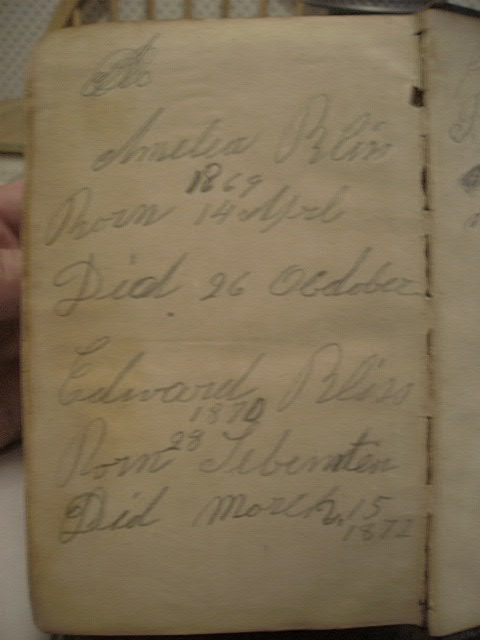 Amelia Blin
1869
Born 14 Aprl
Did 26 October
Edward Bliss
1870
Born 28 Sebemten
Did March, 15
1872